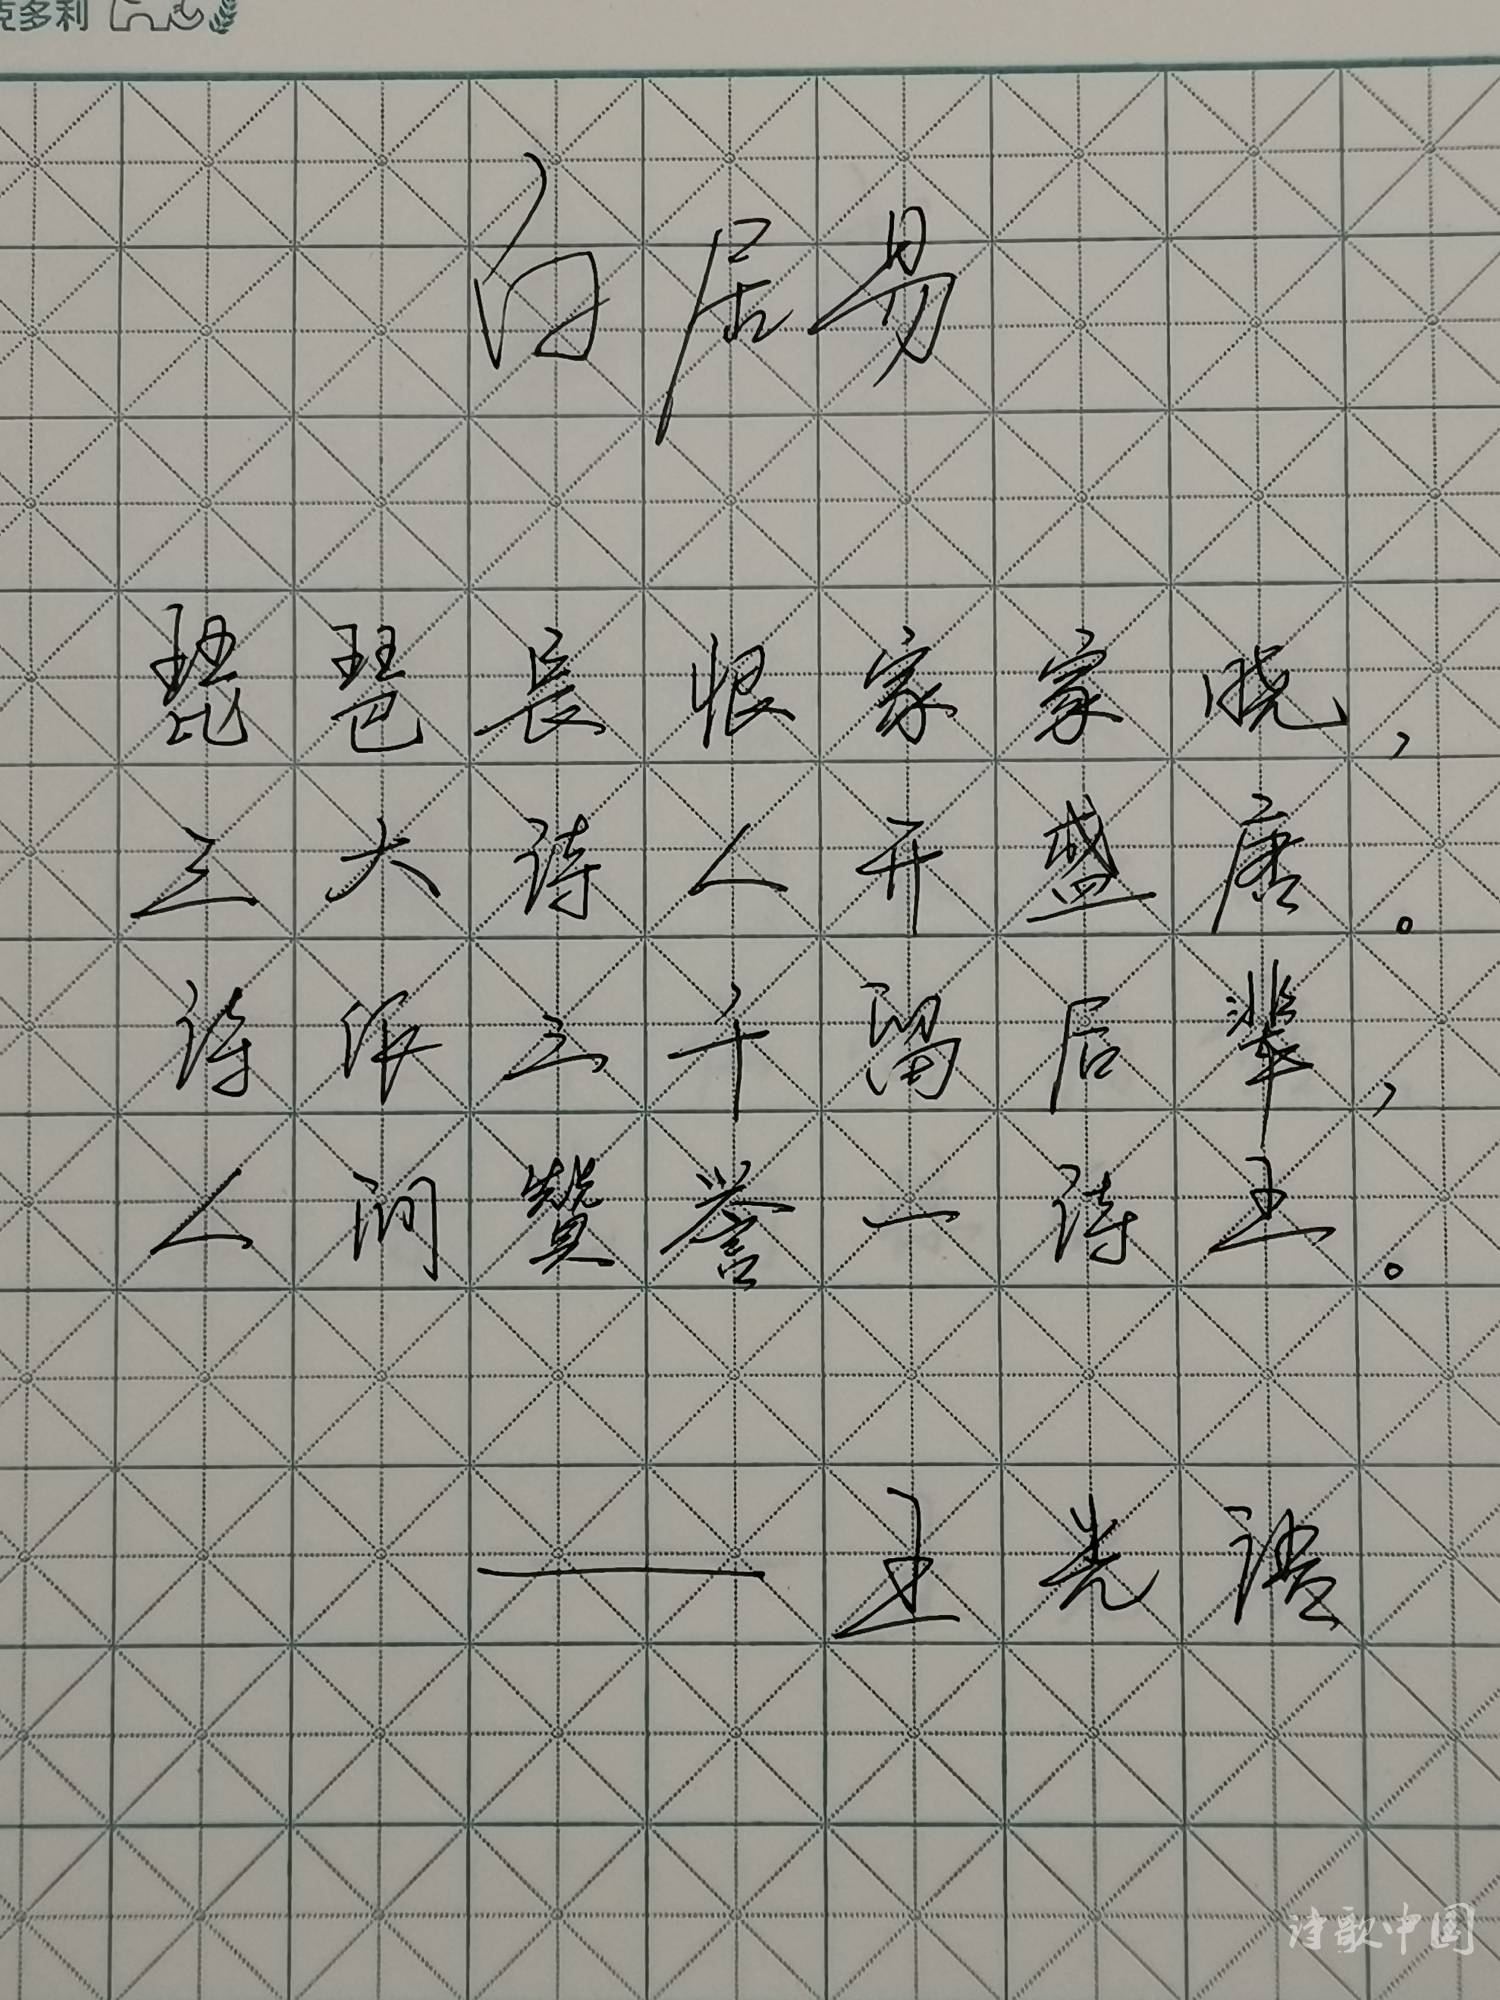 克多利
白居易
琵琶长恨家家晓,
三大诗人开盛唐。
诗作三千留后辈,
人间赞誉一诗王。
——王光
诗歌中国